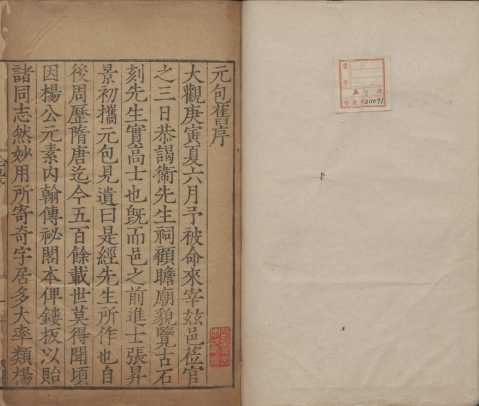 元包舊序
大觀庚寅夏六月予被命來宰玆邑莅官
之三日恭謁衛先生祠顧瞻廟貌覽古石
刻先生實高士也旣而邑之前進士張昇
景初攜元包見遺曰是經先生所作也自
後周歷隋唐迄今五百餘載世莫得聞頃
因楊公元素内翰傳祕閣本俾鏤板以貽
諸同志然妙用所寄奇字居多大率類揚